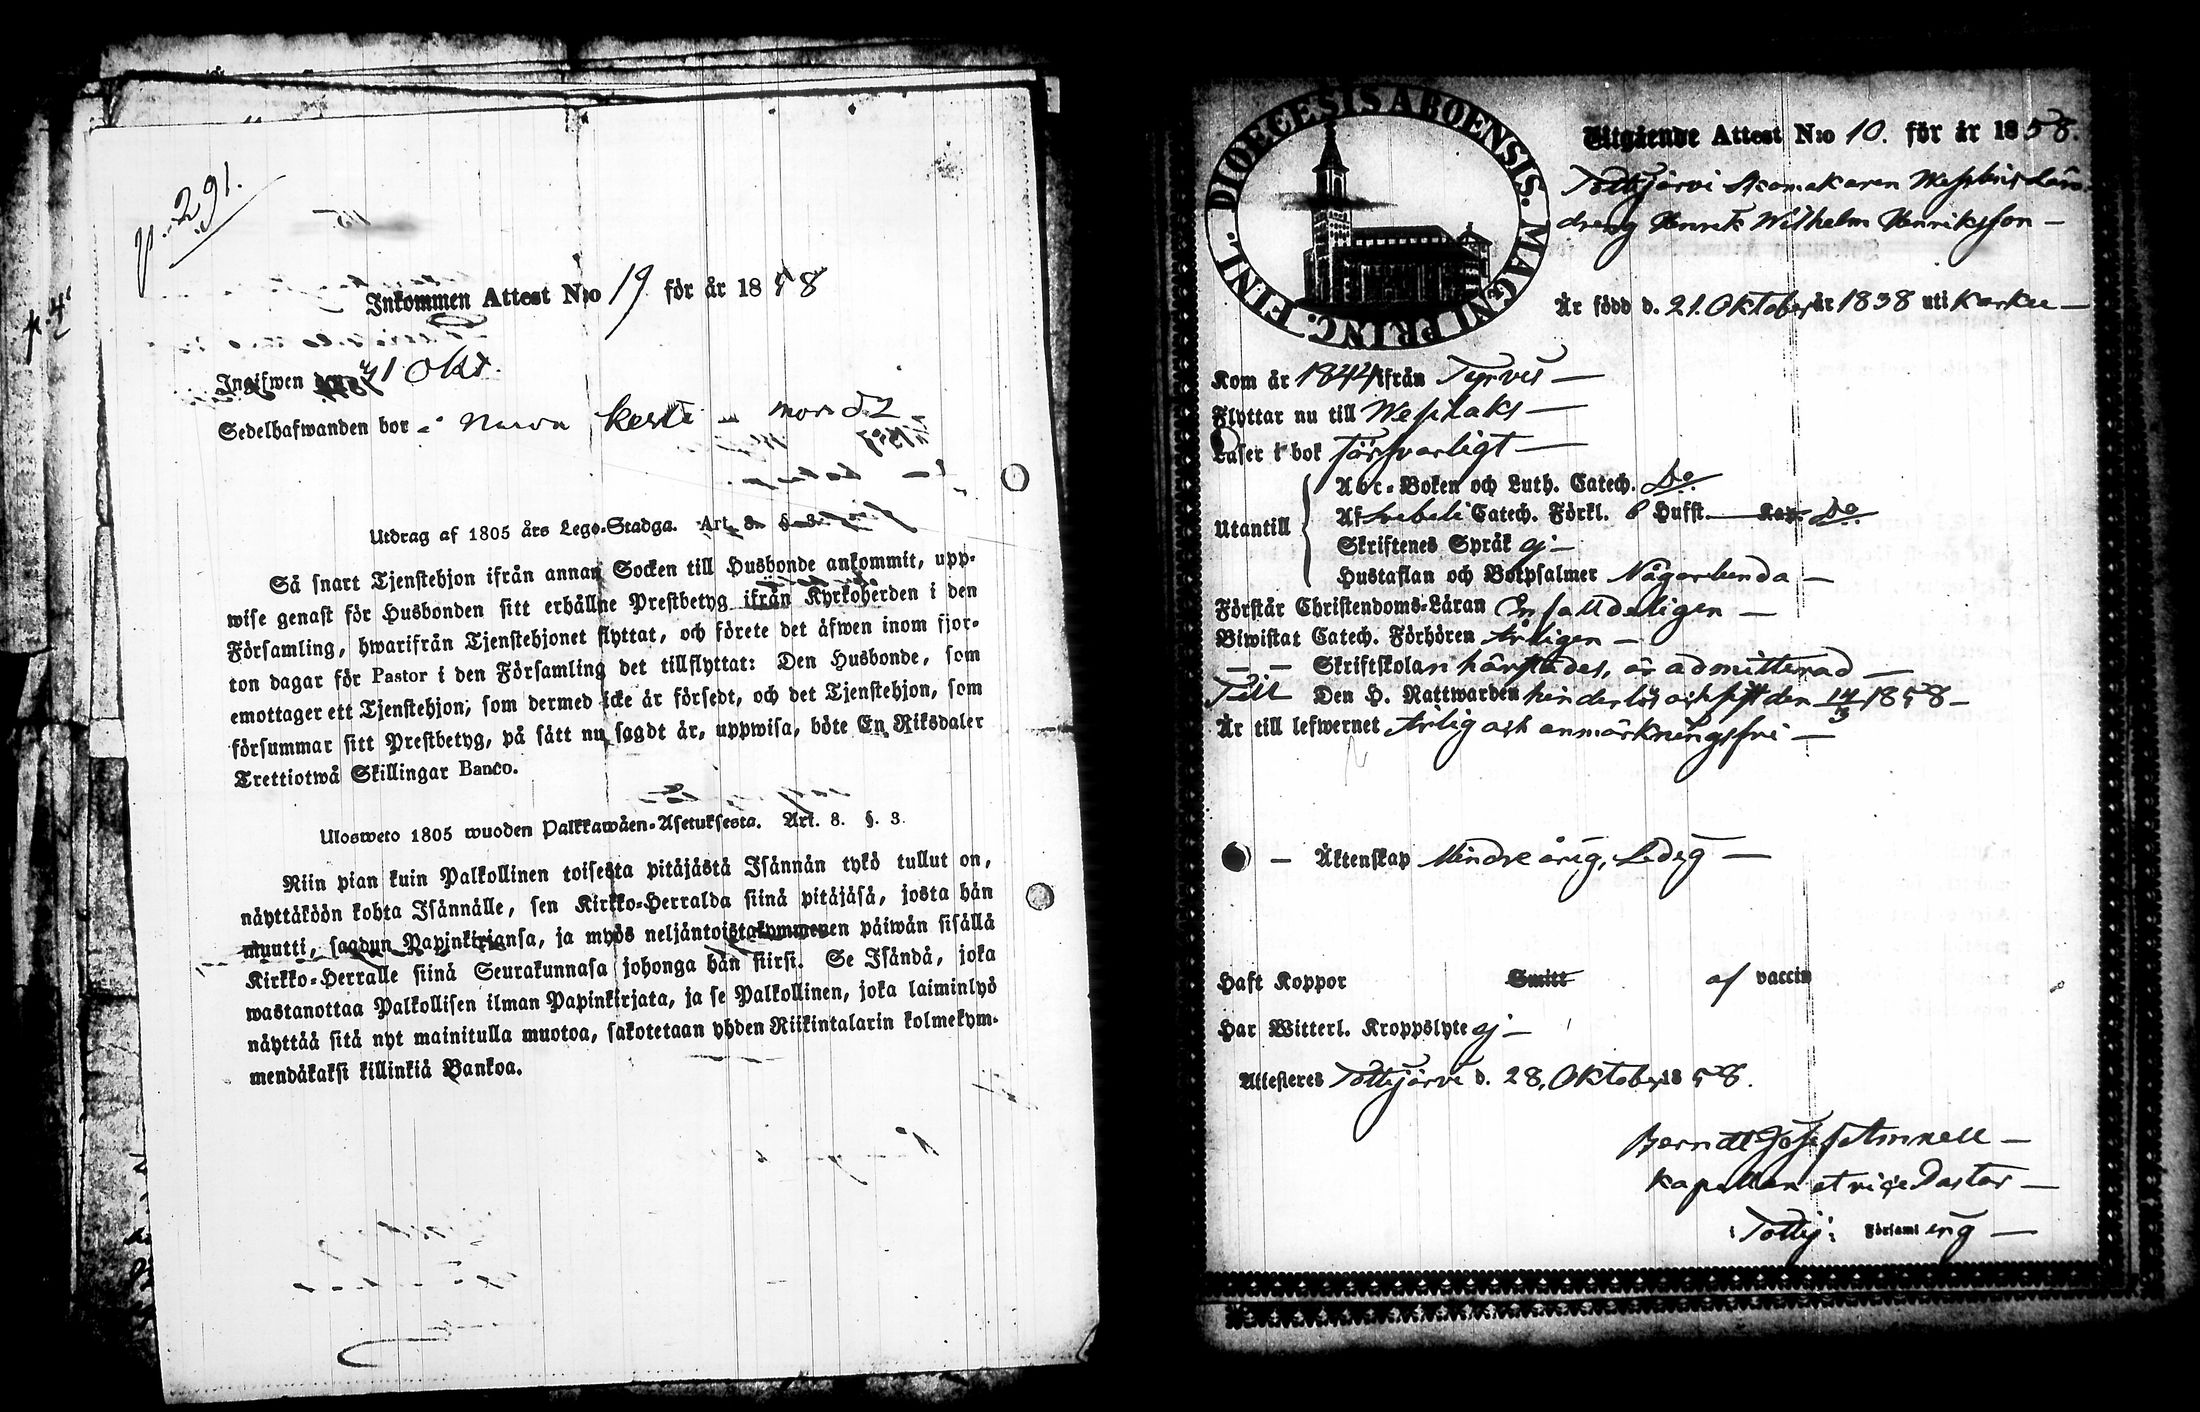 p. 291.
Inkommen Attest N:o 19 för år 1858
Ingifwen den 31 Okt.
Sedelhafwanden bor i
Utdrag af 1805 års Lego-Stadga. Art. 8. §. 3.
Så snart Tjenstehjon ifrån annan Socken till Husbonde ankommit, upp-
wise genast för Husbonden sitt erhållne Prestbetyg ifrån Kyrkoherden i den
Församling, hwarifrån Tjenstehjonet flyttat, och förete det äfwen inom fjor-
ton dagar för Pastor i den Församling det tillflyttat: Den Husbonde, som
emottager ett Tjenstehjon, som dermed icke är försedt, och det Tjenstehjon, som
försummar sitt Prestbetyg, på sätt nu sagdt är, uppwisa, böte En Riksdaler
Trettiotwå Skillingar Banco.
Ulosweto 1805 wuoden Palkkawäen-Asetuksesta. Art. 8. §. 3.
Niin pian kuin Palkollinen toisesta pitäjästä Isännän tykö tullut on,
näyttäköön kohta Isännälle, sen Kirkko-Herralda siinä pitäjäsä, josta hän
muutti, saadun Papinkirjansa, ja myös neljäntoistakymmenen päiwän sisällä
Kirkko-Herralle siinä Seurakunnasa johonga hän siirsi. Se Isändä, joka
wastanottaa Palkollisen ilman Papinkirjata, ja se Palkollinen, joka laiminlyö
näyttää sitä nyt mainitulla muotoa, sakotetaan yhden Riikintalarin kolmekym-
mendäkaksi killinkiä Bankoa.
DIOECESIS ABOENSIS. MAGNI PRINC. FINL.
Utgående Attest N:o 10. för år 1858.
Tottijärvi Skomakaren Wesibris Läro-
dreng Henrik Wilhelm Henriksson —
Är född d. 21. Oktober år 1838 uti Karku —
Kom år 1844 ifrån Tyrvis —
Flyttar nu till Wesilaks —
Läser i bok Försvarligt —
Utantill
Abc-Boken och Luth. Catech. Do
Af Svebelii Catech. Förkl. 6 Hufst. — Kap. Do
Skriftenes Språk ej —
Hustaflan och Botpsalmer Någorlunda —
Förstår Christendoms-Läran Enfalldeligen —
Biwistat Catech. Förhören Årligen —
— — Skriftskolan härstädes, är admitterad —
Till Den H. Nattwarden hinderlös och sist den 14/3 1858 —
Är till lefwernet Ärlig och anmärkningsfri —
— Äktenskap Minderårig, Ledig —
Haft Koppor Smitt af vaccin
Har Witterl. Kroppslyte ej —
Attesteres Tottijärvi d. 28. Oktober 1858.
Berndt Josef Amnell —
Kapellan et vice Pastor —
i Tottij: Församling —